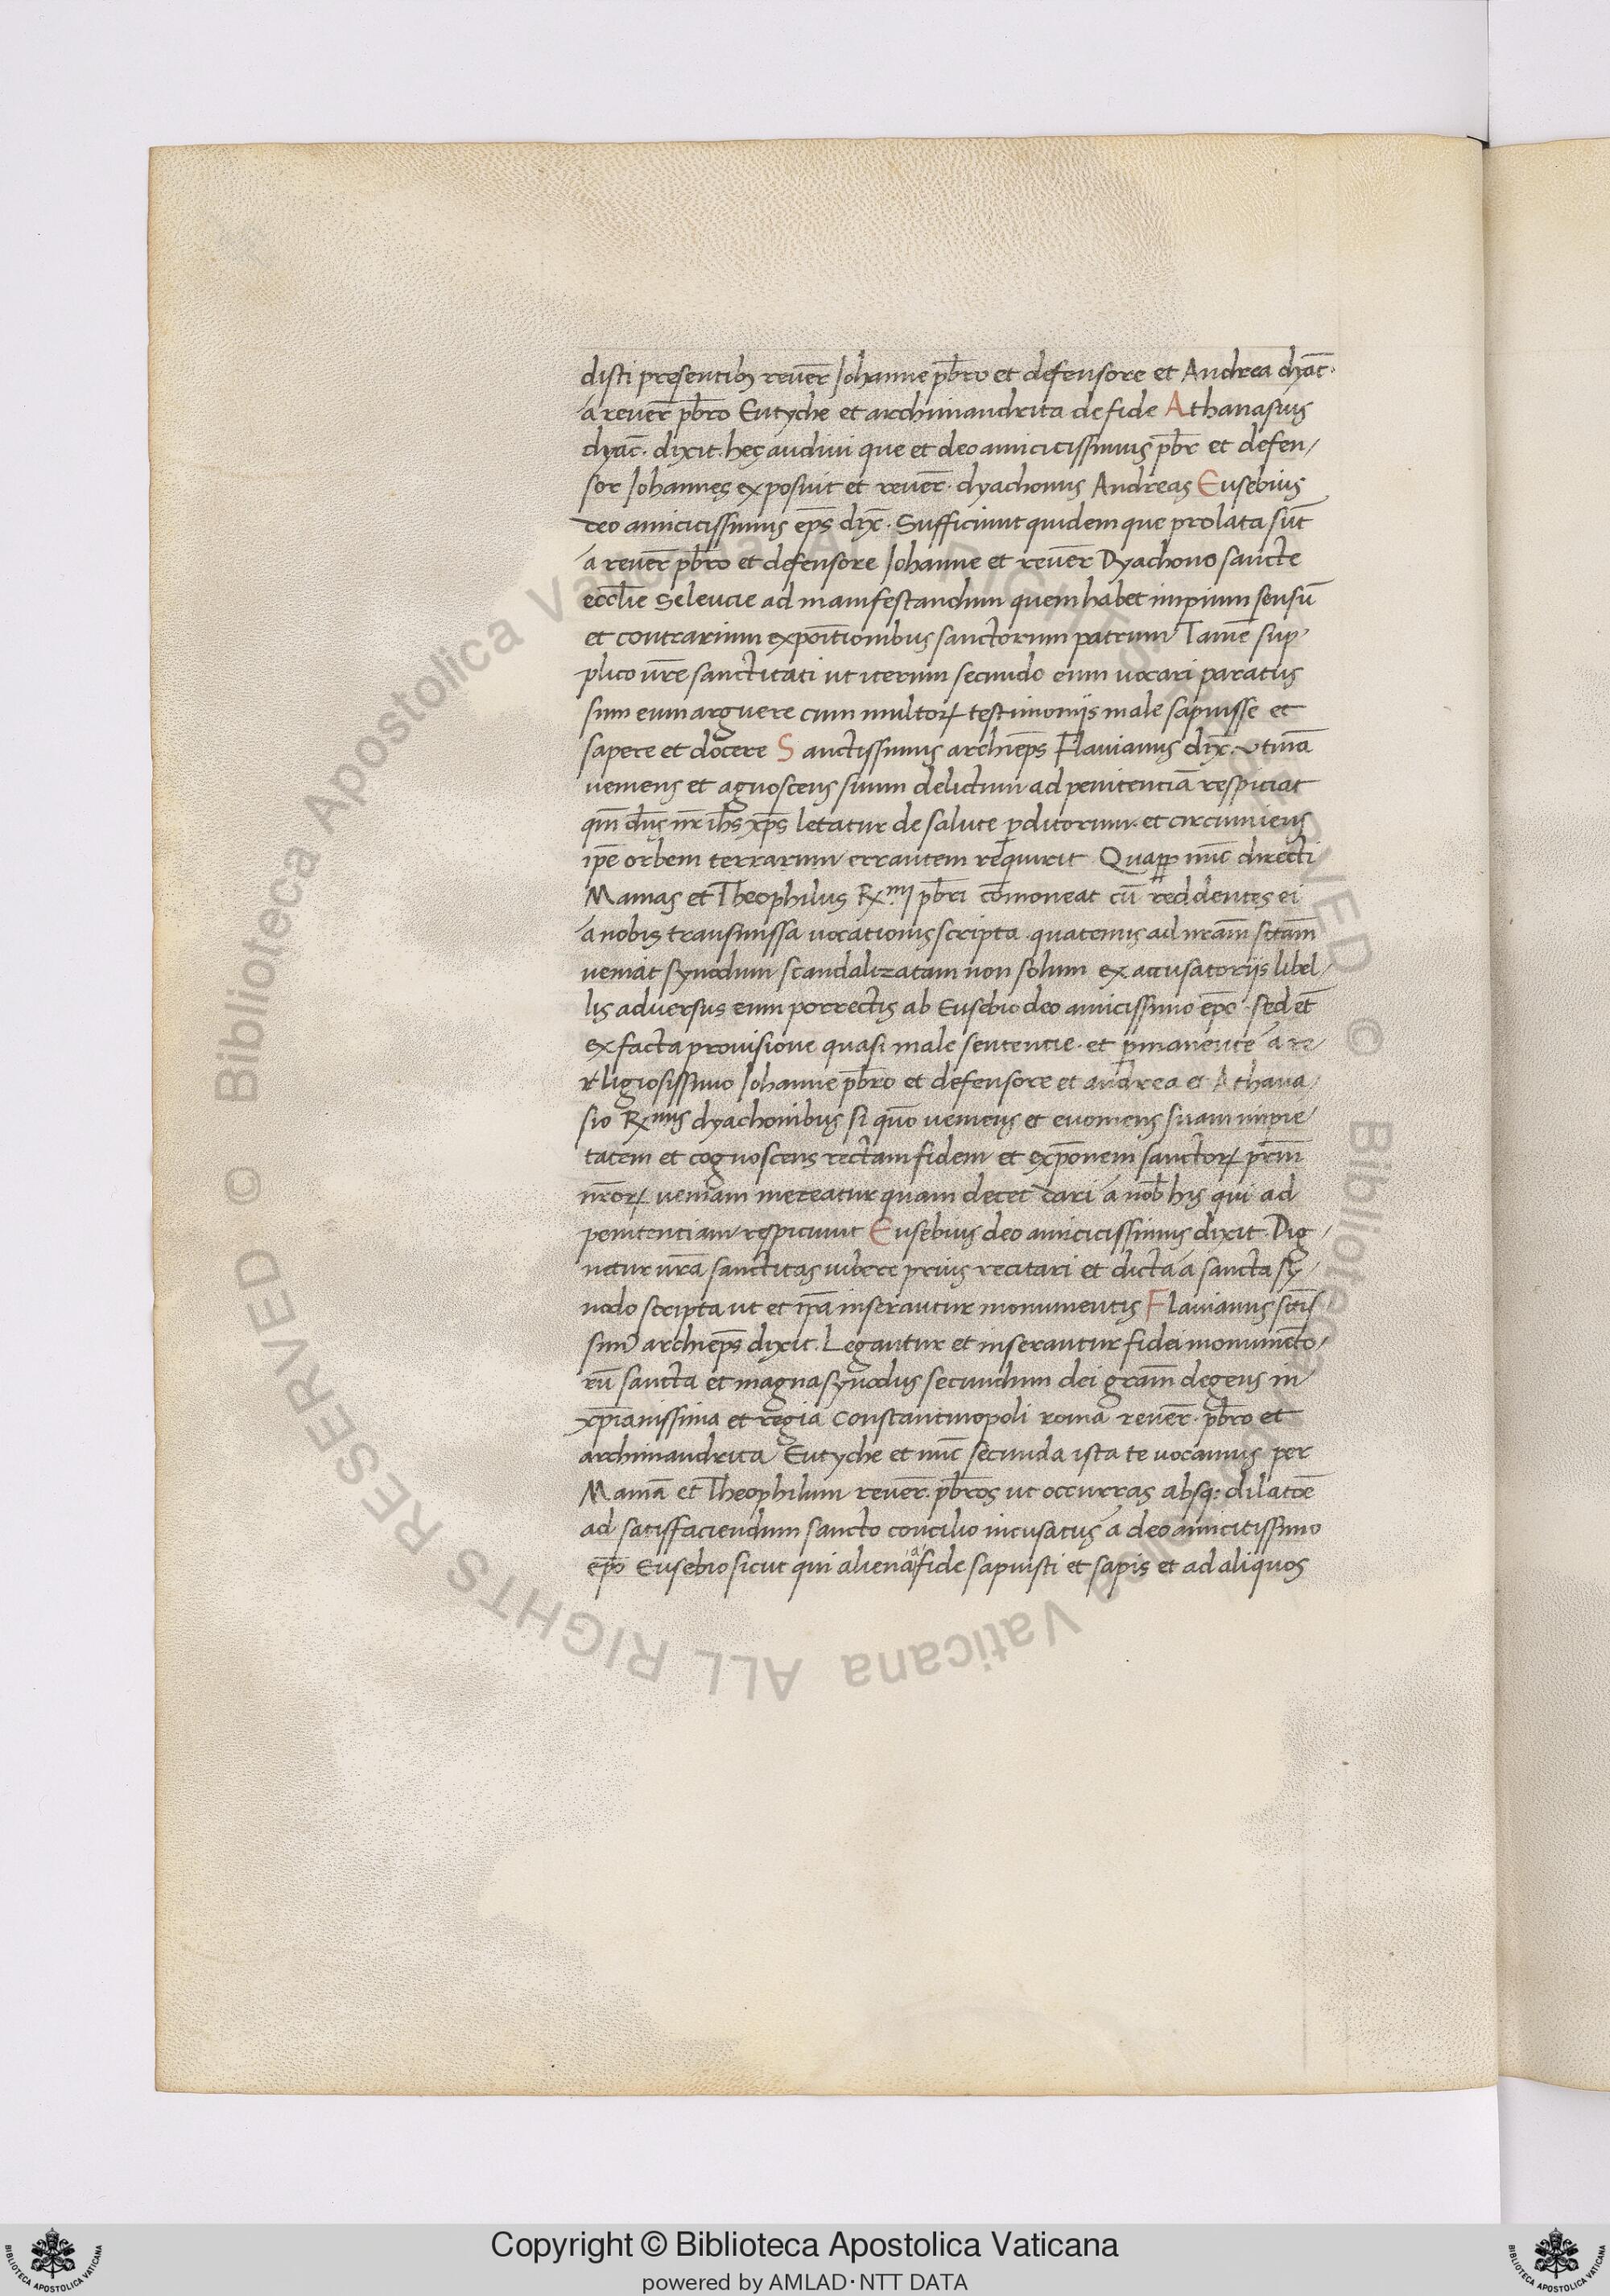 disti presentibꝫ reuer̄ Johanne pb̄ro et defensore et Andrea dyac̄·
a reuer̄ pb̄ro Eutyche et archimandrita de fide Athanasius
dyac̄. dixit. hęc audiui que et deo amicicissimus pb̄r et defen/
sor Johannes exposuit et reuer̄. dyachonus Andreas Eusebius
deo amicicissimus ep̄s dix̄. Sufficiunt quidem que prolata sūt
a reuer̄ pb̄ro et defensore Johanne et reuer̄ Dyachono sancte
eccl̄ie Seleucie ad manifestandum quem habet impium sensū
et contrarium expoītionibus sanctorum patrum Tamē sup/
plico ūre sanctitati ut iterum secundo eum uocari paratus
sum eum arguere cum multoꝝ testimonijs male sapuisse et
sapere et docere Sanctissimus archiep̄s Flauianus dix̄. utinā
ueniens et agnoscens suum delictum ad penitenciā respiciat
qm̄ dn̄s nr̄ ih̄s xp̄s letatur de salute ꝑditorum. et circumiens
ip̄e orbem terrarum errantem requirit Quaꝓꝑ nūc directi
Mamas et Theophilus Rx.mi pb̄ri com̄oneat cū reddentes ei
a nobis transmissa uocationis scripta quatenus ad nrām sctām
ueniat synodum scandalizatam non solum ex accusatorijs libel/
lis adversus eum porrectis ab Eusebio deo amicissimo ep̄o. sed et
ex facta prouisione quasi male sentencie. et ꝑmanente a re/
religiosissimo Johanne pb̄ro et defensore et andrea et Athana/
sio Rxmis dyachonibus si quō ueniens et euomens suam impie/
tatem et cognoscens rectam fidem et exp̄onem sanctoꝝ pr̄m̄
nr̄oꝝ ueniam mereatur quam decet dari a nob̄ his qui ad
penitenciam respiciunt Eusebius deo amicicissimus dixit. Dig/
netur ur̄a sanctitas iubere prius recitari et dicta a sancta sy/
nodo scripta ut et ip̄a inserantur monumentis Flauianus sctis/
sim9 archiep̄s dixit. Legantur et inserantur fidei monumēto/
rū sancta et magna synodus secundum dei grām degens in
xp̄ianissima et regia Constantinopoli roma reuer̄. pb̄ro et
archimandrita Eutyche et nūc secunda ista te uocamus per
Mamā et Theophilum reuer̄. pb̄ros ut occurras absq: dilatōe
ad satisfaciendum sancto concilio incusatus a deo amicitissimo
ep̄o Eusebio sicut qui aliena a fide sapuisti et sapis et ad aliquos
© Biblioteca Apostolica Vaticana ALL RIGHTS RESERVED © Biblioteca Apostolica Vaticana ALL RIGHTS RESERVED
Copyright © Biblioteca Apostolica Vaticana
powered by AMLAD·NTT DATA
BIBLIOTECA APOSTOLICA VATICANA
BIBLIOTECA APOSTOLICA VATICANA